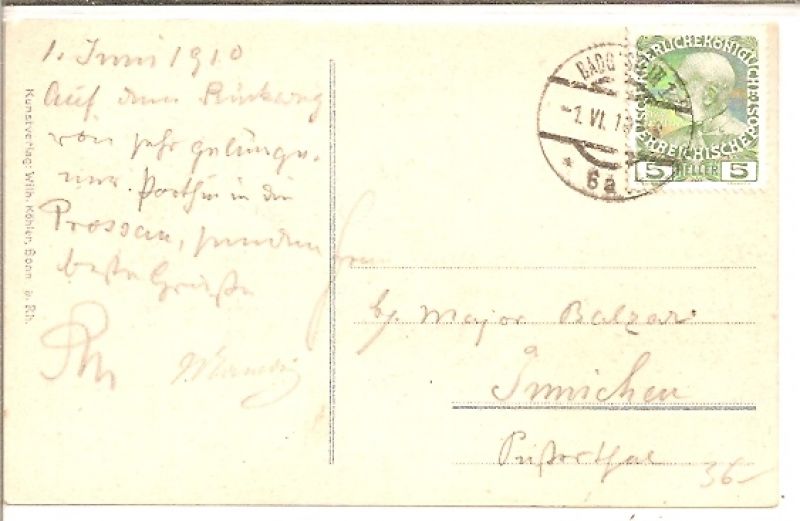 1. Juni 1910
Auf dem Rückweg
von sehr gelunge-
ner Parthie in die
Prossau, senden
beste Grüße
Kunstverlag: Wilh. Köhler, Bonn a. Rh.
BADGASTEIN 1
-1. VI. 10
* 6a *
KAISERLICHE KÖNIGLICHE
ÖSTERREICHISCHE POST
5 HELLER 5
Major Balzar
Innichen
Pusterthal
36-